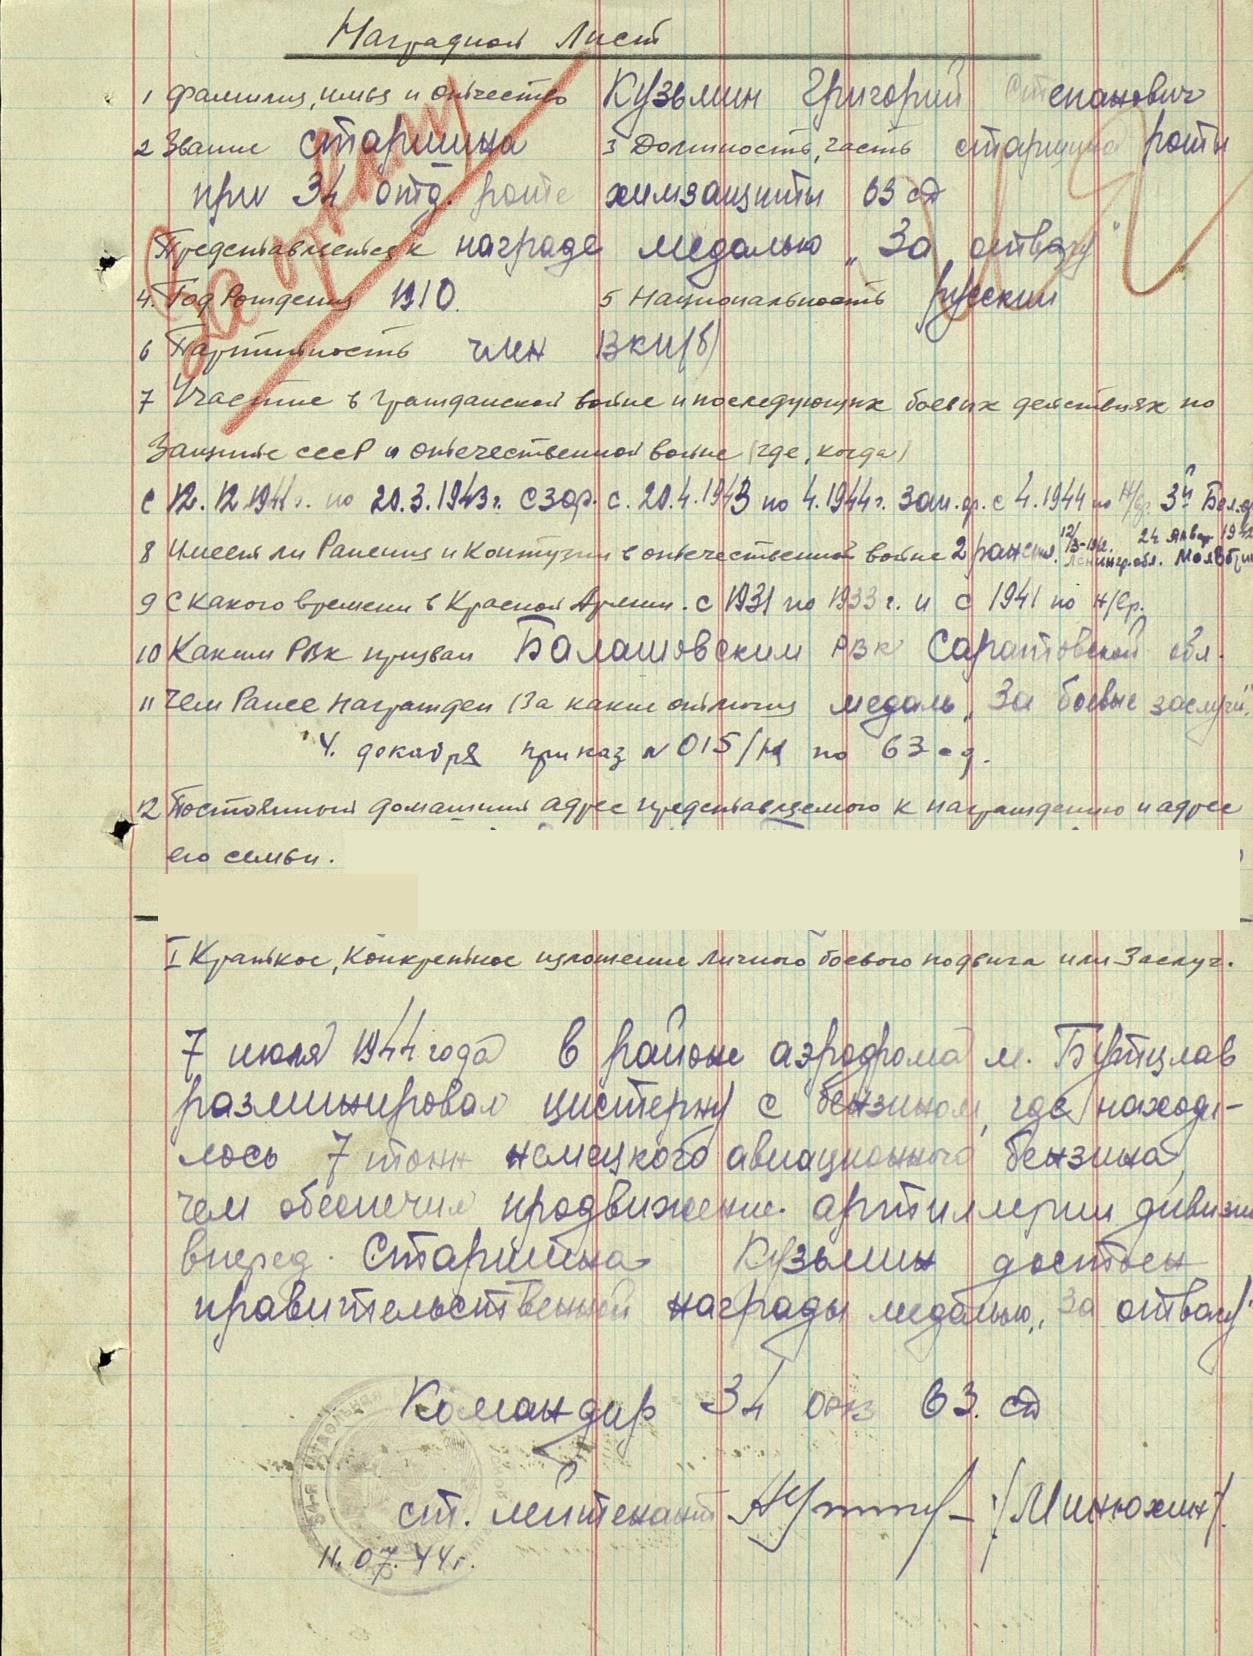 Наградной лист
1 Фамилия, имя и отчество Кузьмин Григорий Степанович
2 Звание старшина 3 Должность, часть старшина роты
при 34 отд. роте химзащиты 63 сд
Представляется к награде медалью „За отвагу"
4. Год Рождения 1910. 5 Национальность русский
6 Партийность член ВКП(б)
7 Участие в гражданской войне и последующих боевых действиях по
Защите СССР и отечественной войне (где, когда)
с 12.12.1941г. по 20.3.1943г. СЗФр. с. 20.4.1943 по 4.1944г. Зап.фр. с 4.1944 по н/вр 3й Бел.фр
8 Имеет ли Ранения и Контузии в отечественной войне 2 ранения. Ленингр.обл. 24 Январ
9 С какого времени в Красной Армии. с 1931 по 1933г. и с 1941 по н/вр.
10 Каким РВК призван Балашовским РВК Саратовской обл.
11 Чем Ранее награжден (За какие отличия медаль „За боевые заслуги"
4. декабря приказ №015/н по 63 сд.
12 Постоянный домашний адрес представляемого к награждению и адрес
его семьи.
I Краткое, конкретное изложение личного боевого подвига или Заслуг.
7 июля 1944 года в районе аэродрома м. Бутцлав
разминировал цистерну с бензином, где находи-
лось 7 тонн немецкого авиационного бензина,
чем обеспечил продвижение артиллерии дивизии
вперед. Старшина Кузьмин достоен
правительственной награды медалью „За отвагу"
Командир 34 орхз 63. сд
ст. лейтенант /Минюхин/.
11.07.44г.
За отвагу